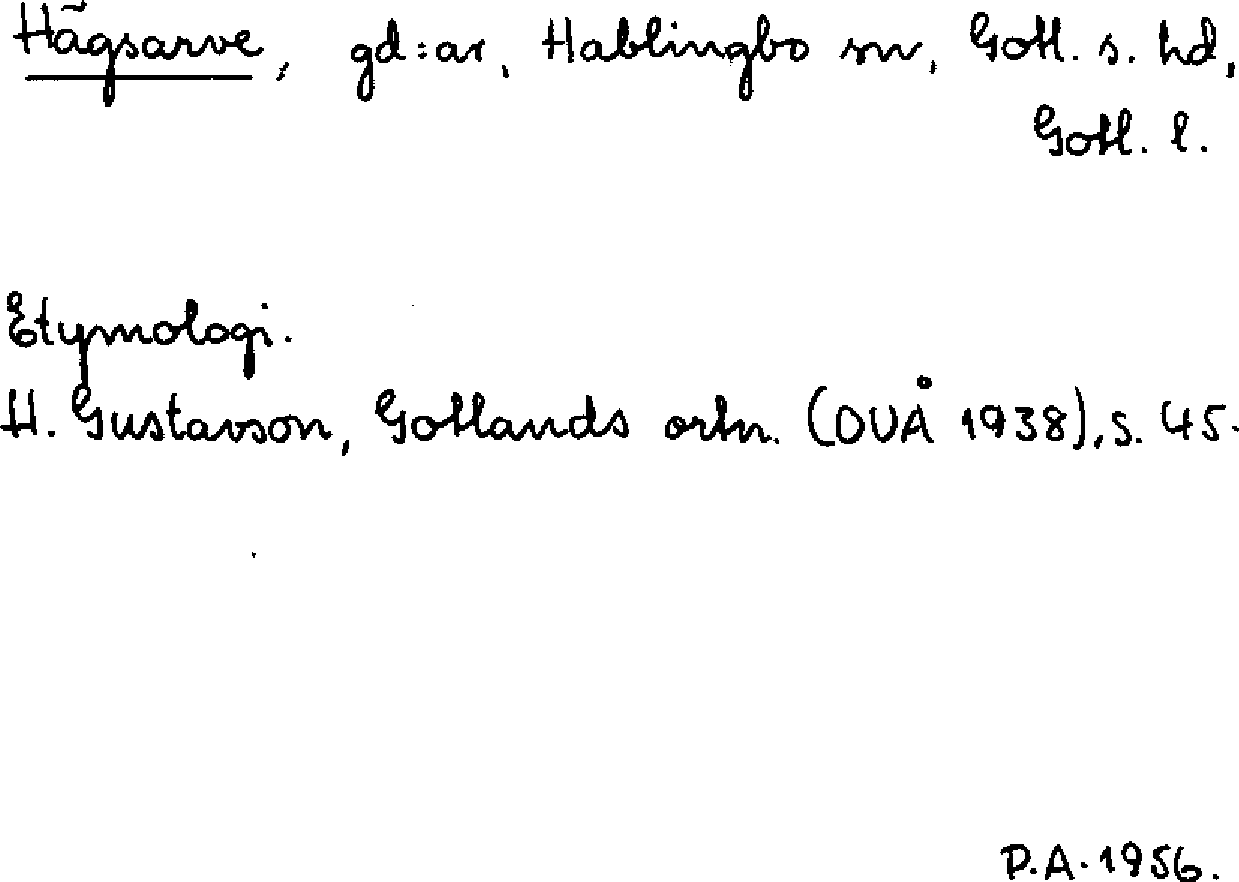 Hägsarve, gd:ar, Hablingbo sn, Gotl. s. hd,
Gotl. l.
Etymologi.
H. Gustavson, Gotlands ortn. (OUÅ 1938), s. 45.
P.A. 1956.